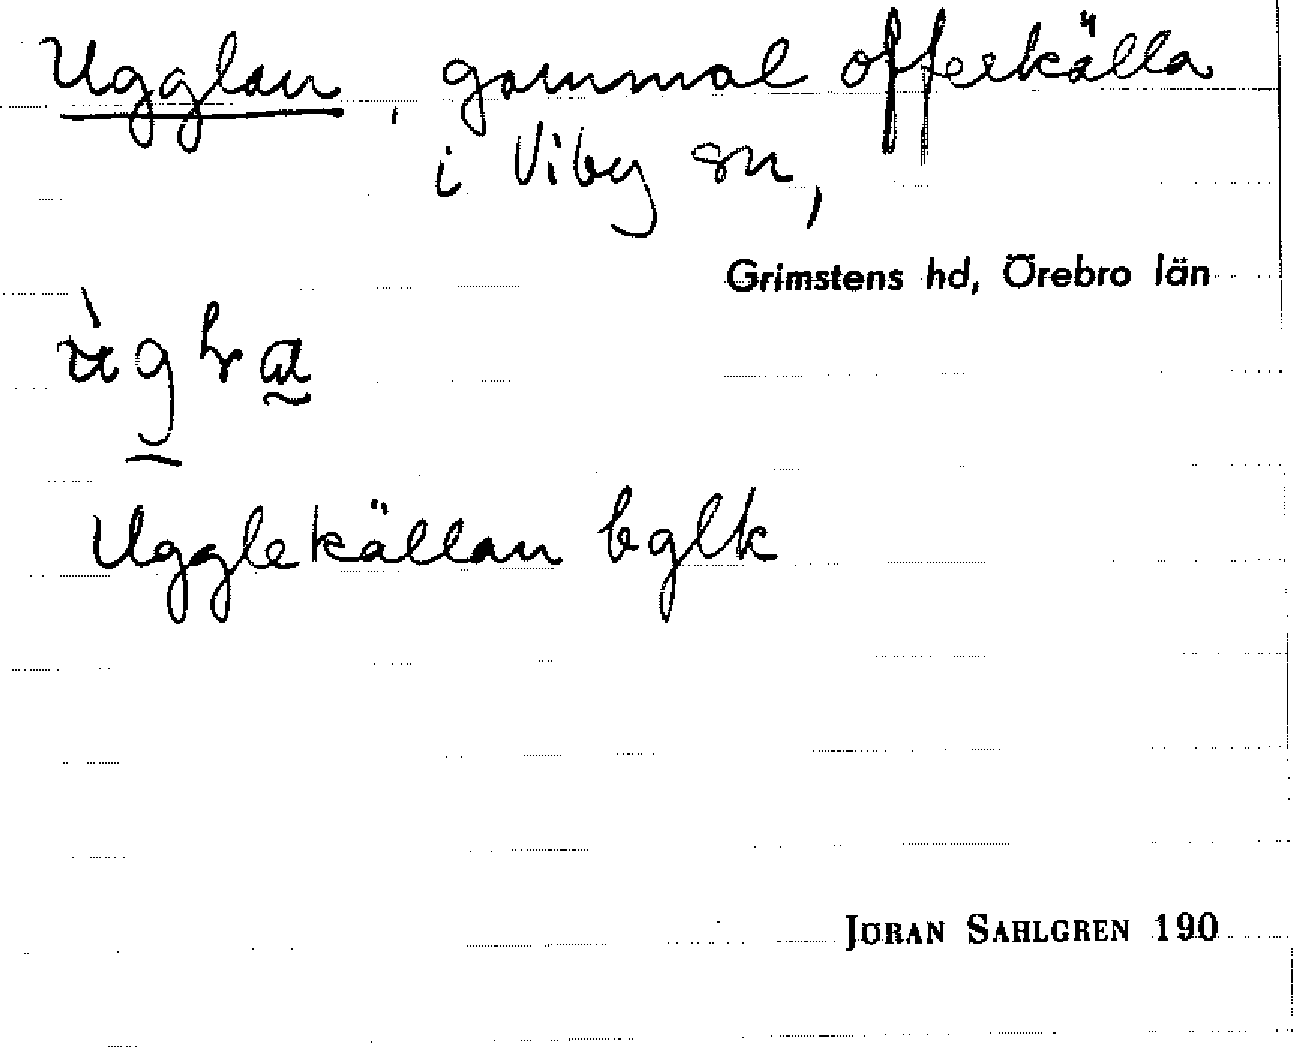 Ugglan, gammal offerkälla
i Viby sn,
Grimstens hd, Örebro län
Ugglekällan bglk
JÖRAN SAHLGREN 190